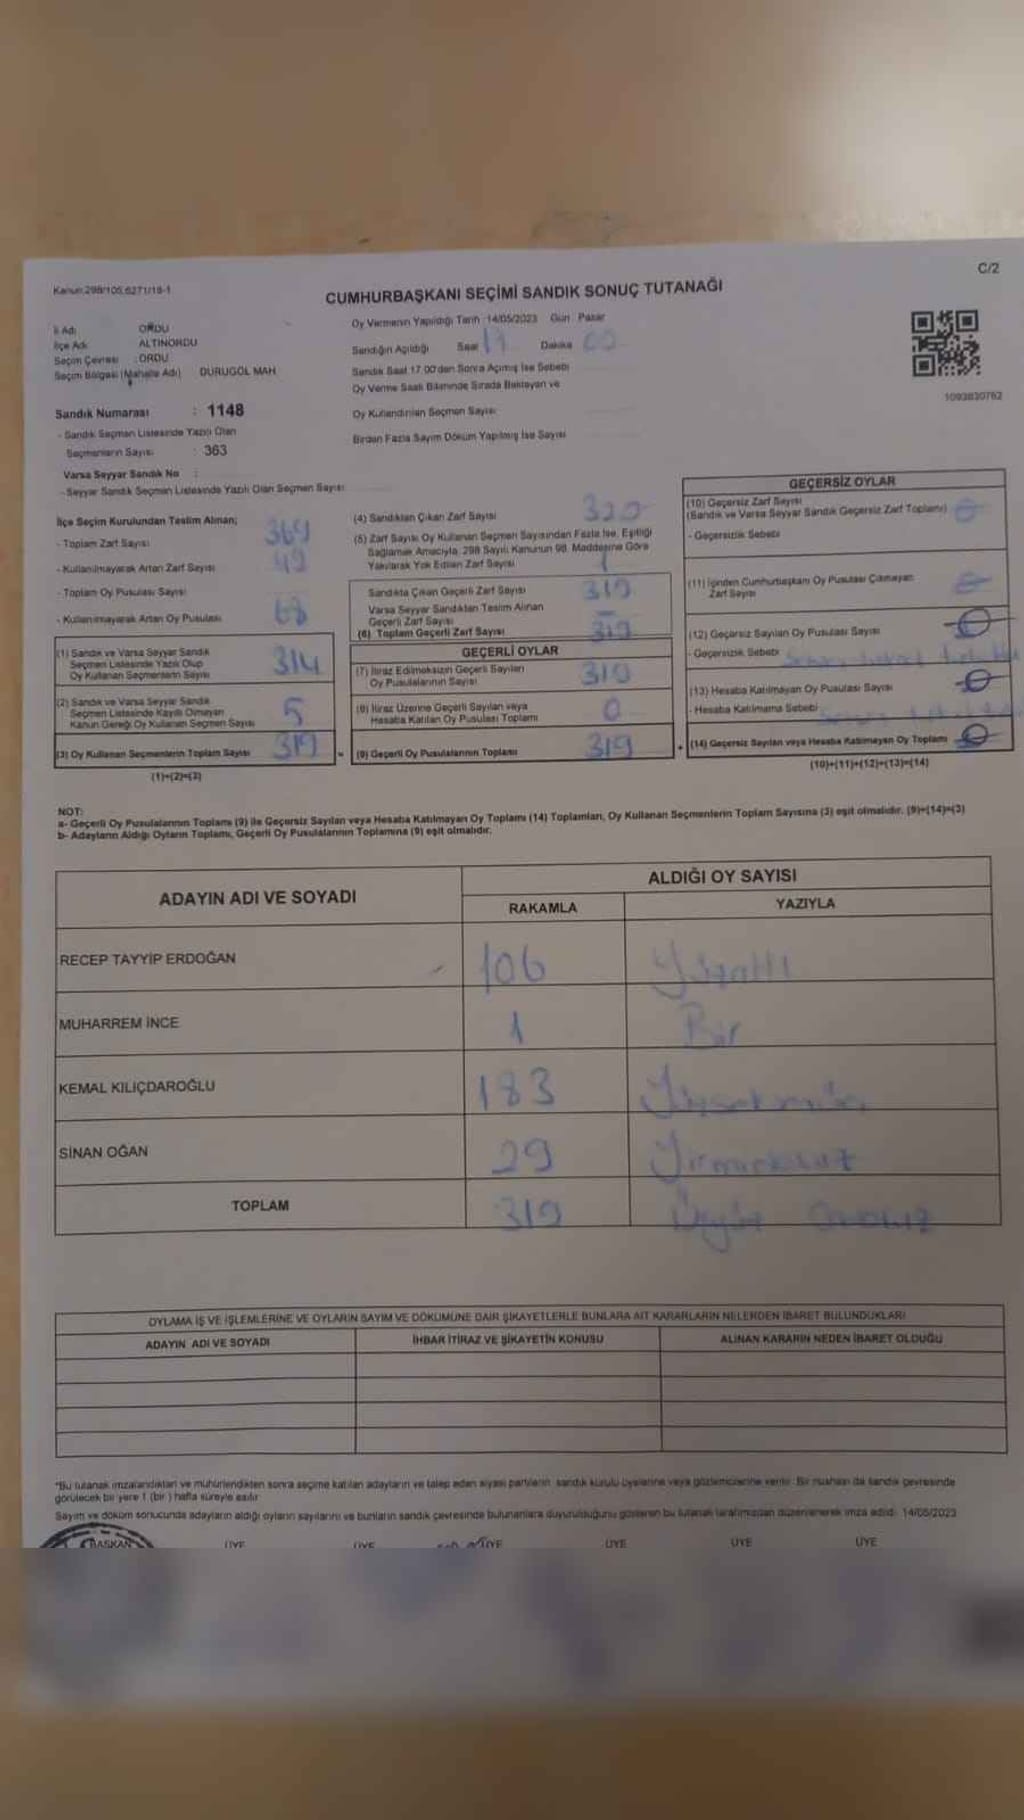 C/2
Kanun:298/105,6271/18-1
CUMHURBAŞKANI SEÇİMİ SANDIK SONUÇ TUTANAĞI
İl Adı ORDU
İlçe Adı ALTINORDU
Seçim Çevresi :ORDU
Seçim Bölgesi (Mahalle Adı) DURUGÖL MAH.
Oy Vermenin Yapıldığı Tarih :14/05/2023 Gün : Pazar
Sandığın Açıldığı Saat 17 Dakika 00
Sandık Saat 17.00'den Sonra Açılmış İse Sebebi
Oy Verme Saati Bitiminde Sırada Bekleyen ve
Oy Kullandırılan Seçmen Sayısı
Birden Fazla Sayım Döküm Yapılmış İse Sayısı
1093830762
Sandık Numarası : 1148
- Sandık Seçmen Listesinde Yazılı Olan
Seçmenlerin Sayısı : 363
Varsa Seyyar Sandık No :
- Seyyar Sandık Seçmen Listesinde Yazılı Olan Seçmen Sayısı
İlçe Seçim Kurulundan Teslim Alınan;
- Toplam Zarf Sayısı 369
- Kullanılmayarak Artan Zarf Sayısı 49
- Toplam Oy Pusulası Sayısı
- Kullanılmayarak Artan Oy Pusulası
(1) Sandık ve Varsa Seyyar Sandık
Seçmen Listesinde Yazılı Olup
Oy Kullanan Seçmenlerin Sayısı 314
(2) Sandık ve Varsa Seyyar Sandık
Seçmen Listesinde Kayıtlı Olmayan
Kanun Gereği Oy Kullanan Seçmen Sayısı 5
(3) Oy Kullanan Seçmenlerin Toplam Sayısı 319
(1)+(2)=(3)
(4) Sandıktan Çıkan Zarf Sayısı 320
(5) Zarf Sayısı Oy Kullanan Seçmen Sayısından Fazla İse, Eşitliği
Sağlamak Amacıyla, 298 Sayılı Kanunun 98. Maddesine Göre
Yakılarak Yok Edilen Zarf Sayısı 1
Sandıkta Çıkan Geçerli Zarf Sayısı 319
Varsa Seyyar Sandıktan Teslim Alınan
Geçerli Zarf Sayısı -
(6) Toplam Geçerli Zarf Sayısı 319
GEÇERLİ OYLAR
(7) İtiraz Edilmeksizin Geçerli Sayılan
Oy Pusulalarının Sayısı 319
(8) İtiraz Üzerine Geçerli Sayılan veya
Hesaba Katılan Oy Pusulası Toplamı 0
= (9) Geçerli Oy Pusulalarının Toplamı 319
GEÇERSİZ OYLAR
(10) Geçersiz Zarf Sayısı
(Sandık ve Varsa Seyyar Sandık Geçersiz Zarf Toplamı)
- Geçersizlik Sebebi
(11) İçinden Cumhurbaşkanı Oy Pusulası Çıkmayan
Zarf Sayısı
(12) Geçersiz Sayılan Oy Pusulası Sayısı
- Geçersizlik Sebebi
(13) Hesaba Katılmayan Oy Pusulası Sayısı
- Hesaba Katılmama Sebebi
+ (14) Geçersiz Sayılan veya Hesaba Katılmayan Oy Toplamı
(10)+(11)+(12)+(13)=(14)
NOT:
a- Geçerli Oy Pusulalarının Toplamı (9) ile Geçersiz Sayılan veya Hesaba Katılmayan Oy Toplamı (14) Toplamları, Oy Kullanan Seçmenlerin Toplam Sayısına (3) eşit olmalıdır. (9)+(14)=(3)
b- Adayların Aldığı Oyların Toplamı, Geçerli Oy Pusulalarının Toplamına (9) eşit olmalıdır.
ADAYIN ADI VE SOYADI ALDIĞI OY SAYISI
RAKAMLA YAZIYLA
RECEP TAYYİP ERDOĞAN 106 Yüzaltı
MUHARREM İNCE 1 Bir
KEMAL KILIÇDAROĞLU 183
SİNAN OĞAN 29 Yirmidokuz
TOPLAM 319
OYLAMA İŞ VE İŞLEMLERİNE VE OYLARIN SAYIM VE DÖKÜMÜNE DAİR ŞİKAYETLERLE BUNLARA AİT KARARLARIN NELERDEN İBARET BULUNDUKLARI
ADAYIN ADI VE SOYADI İHBAR İTİRAZ VE ŞİKAYETİN KONUSU ALINAN KARARIN NEDEN İBARET OLDUĞU
*Bu tutanak imzalandıktan ve mühürlendikten sonra seçime katılan adayların ve talep eden siyasi partilerin sandık kurulu üyelerine veya gözlemcilerine verilir. Bir nüshası da sandık çevresinde
görülecek bir yere 1 (bir) hafta süreyle asılır.
Sayım ve döküm sonucunda adayların aldığı oyların sayılarını ve bunların sandık çevresinde bulunanlara duyurulduğunu gösteren bu tutanak tarafımızdan düzenlenerek imza edildi. 14/05/2023
BAŞKAN ÜYE ÜYE ÜYE ÜYE ÜYE ÜYE